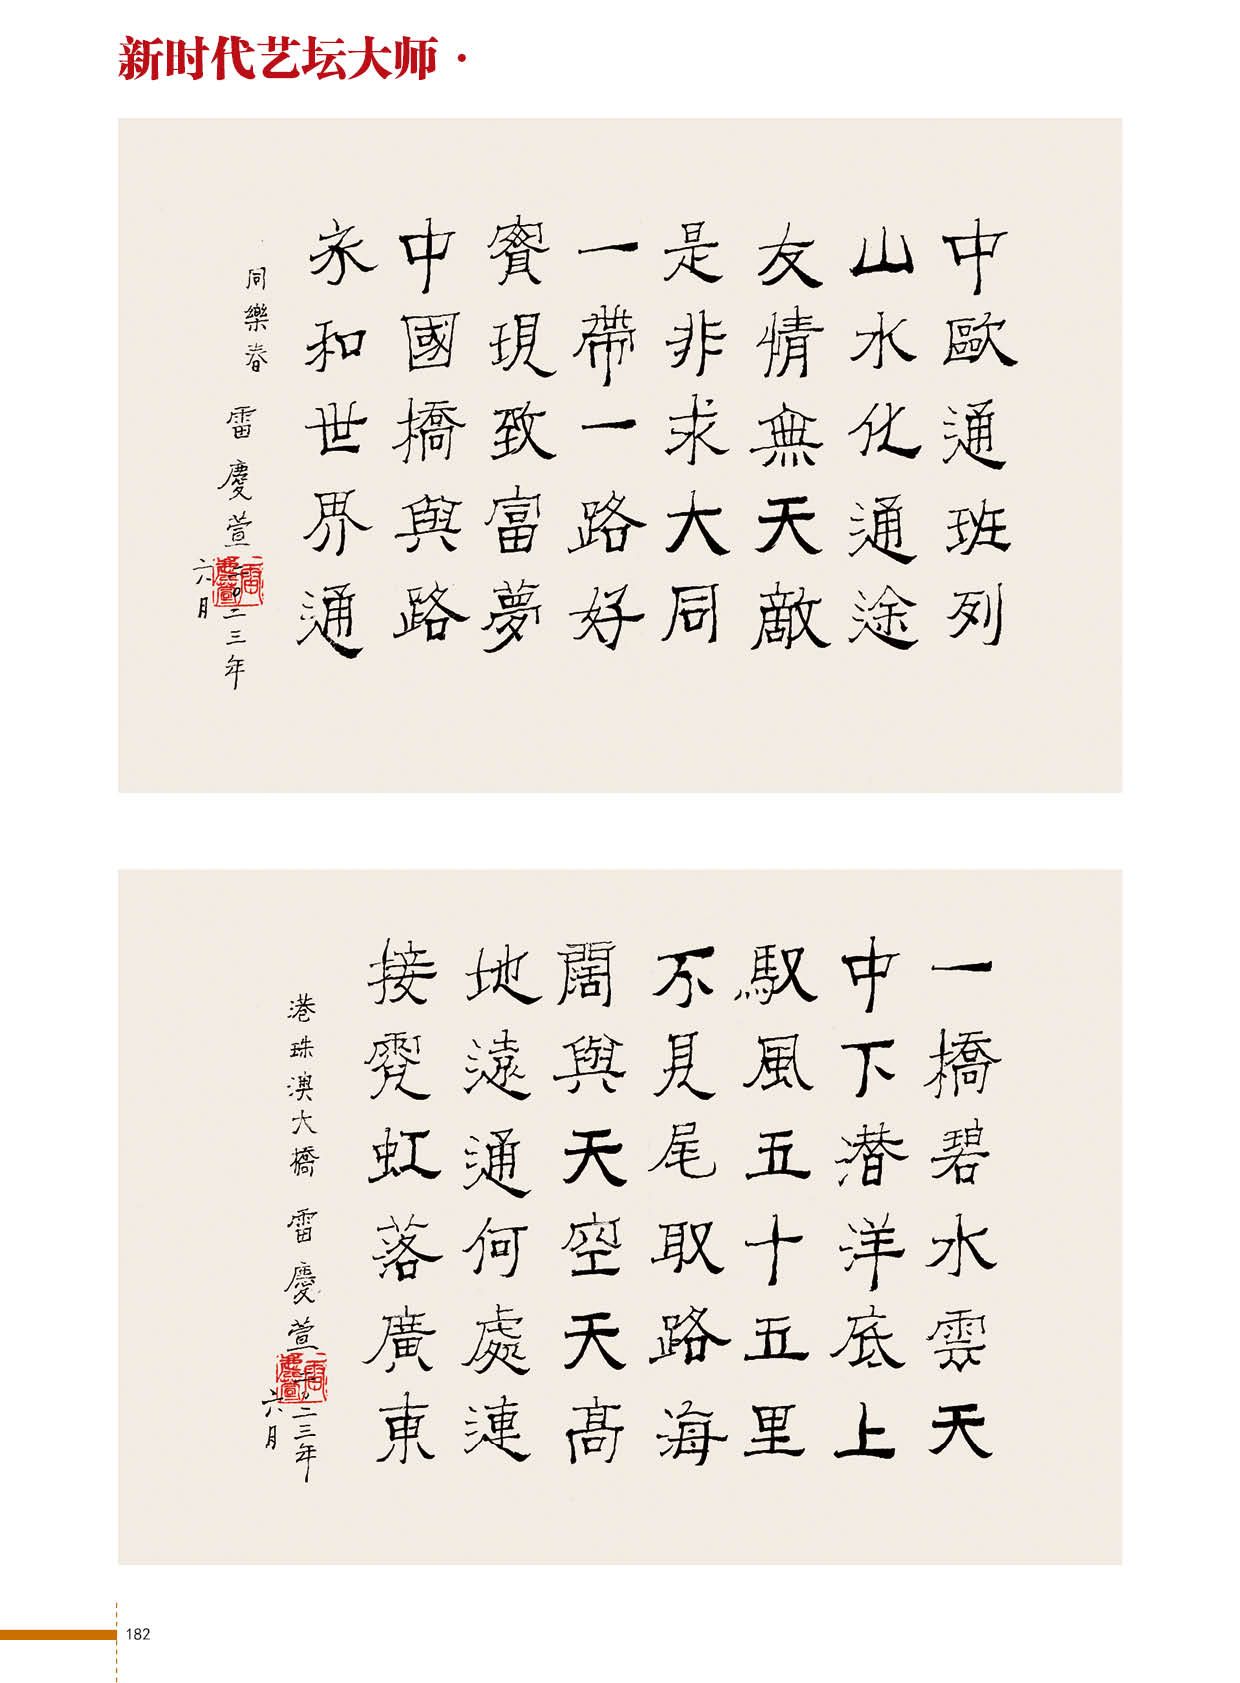 新时代艺坛大师·
中歐通班列
山水化通途
友情無天敵
是非求大同
一帶一路好
實現致富夢
中國橋與路
永和世界通
同樂春
雷慶萱
二〇二三年
六月
一橋碧水雲天
中下潜洋底上
馭風五十五里
不見尾取路海
闊與天空天高
地遠通何處連
接霓虹落廣東
港珠澳大橋
雷慶萱
二〇二三年
六月
182